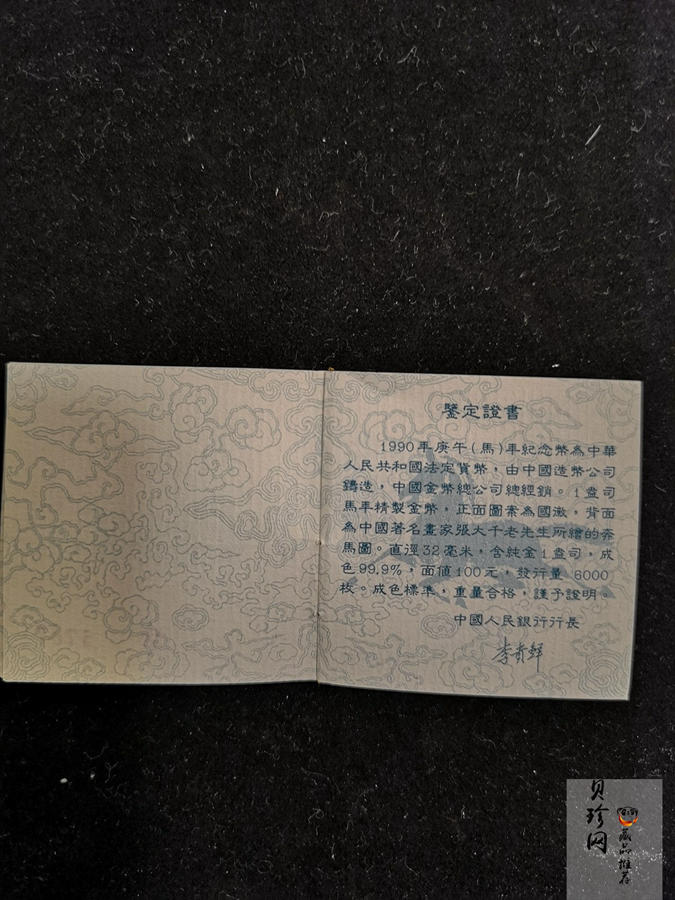 鑒定證書
1990年庚午(馬)年紀念幣為中華
人民共和國法定貨幣，由中國造幣公司
鑄造，中國金幣總公司總經銷。1盎司
馬年精製金幣，正面圖案為國徽，背面
為中國著名畫家張大千老先生所繪的奔
馬圖。直徑32毫米，含純金1盎司，成
色99.9%，面值100元，發行量 6000
枚。成色標準，重量合格，謹予證明。
中國人民銀行行長
李貴鲜
贝珍网
藏品推荐